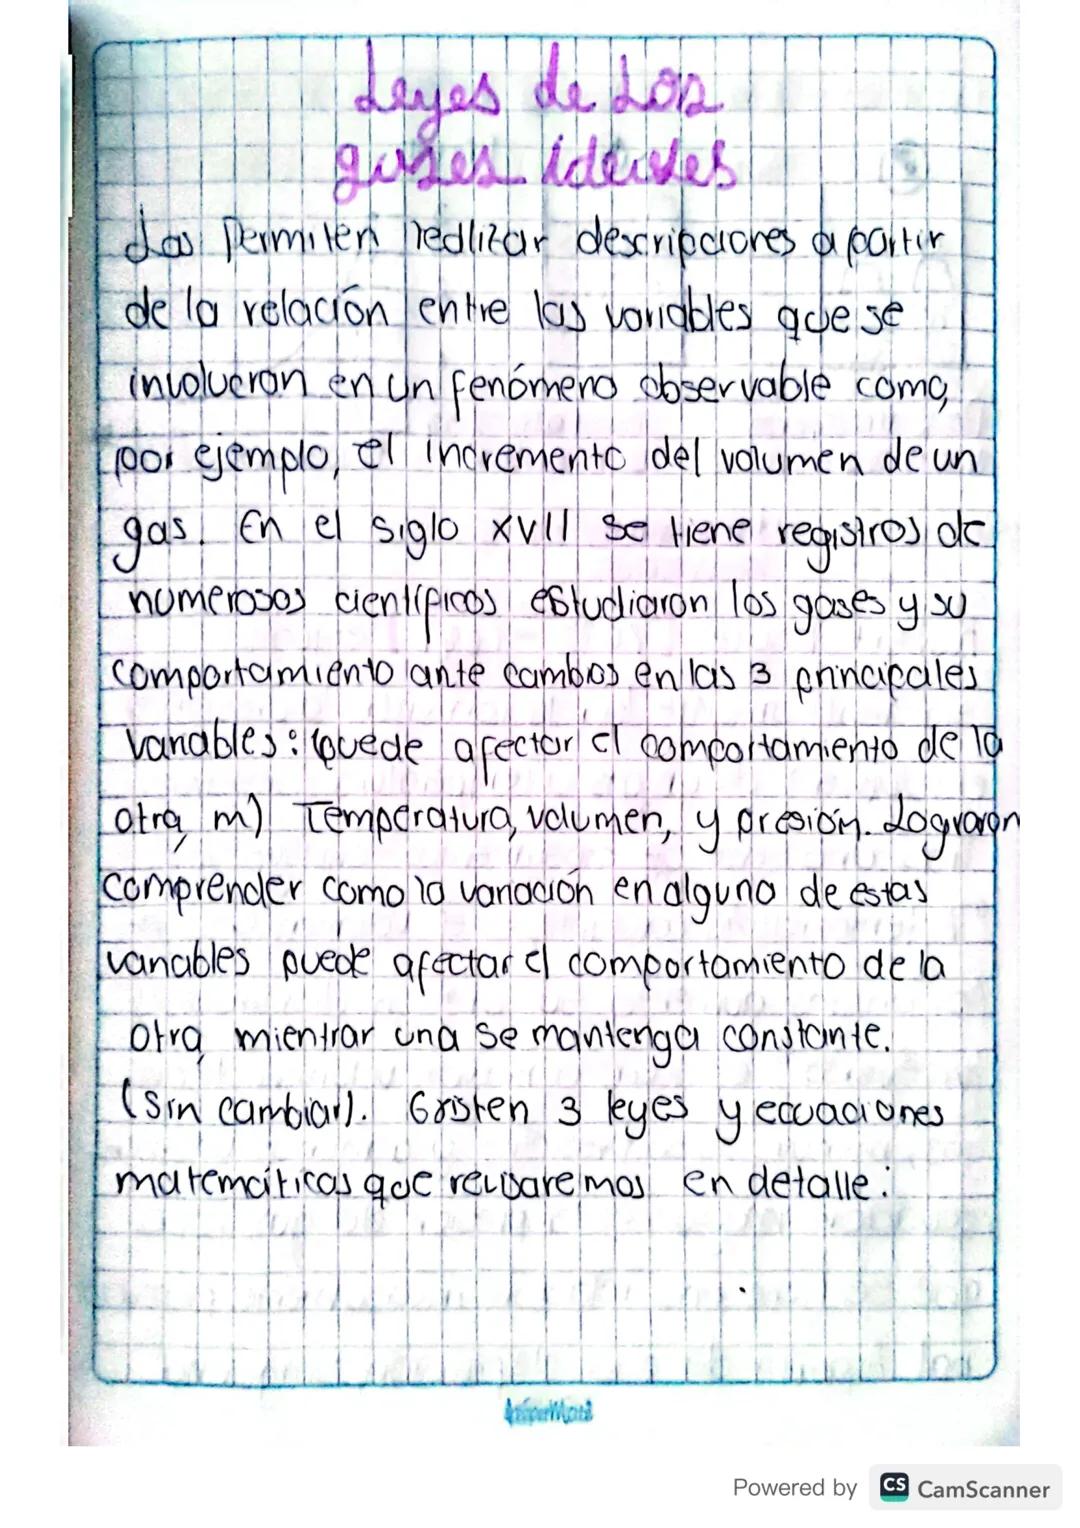 Leyes de Los
gases ideales
Las Permiten realizar descripciones a partir
de la relación entre las variables que se
involucran en un fenómeno observable como,
por ejemplo, el incremento del volumen de un
gas. En el siglo XVII se tiene registros de
numerosos científicos estudiaron los gases y su
comportamiento ante cambios en las 3 principales
variables: puede afectar el comportamiento de la
otra, m) Temperatura, volumen, y presión. Lograron
comprender como la variación en alguna de estas
variables puede afectar el comportamiento de la
otra, mientrar una se mantenga constante.
(sin cambiar). Existen 3 leyes y ecuaciones
matemáticas que revisaremos en detalle:
Powered by CS CamScanner